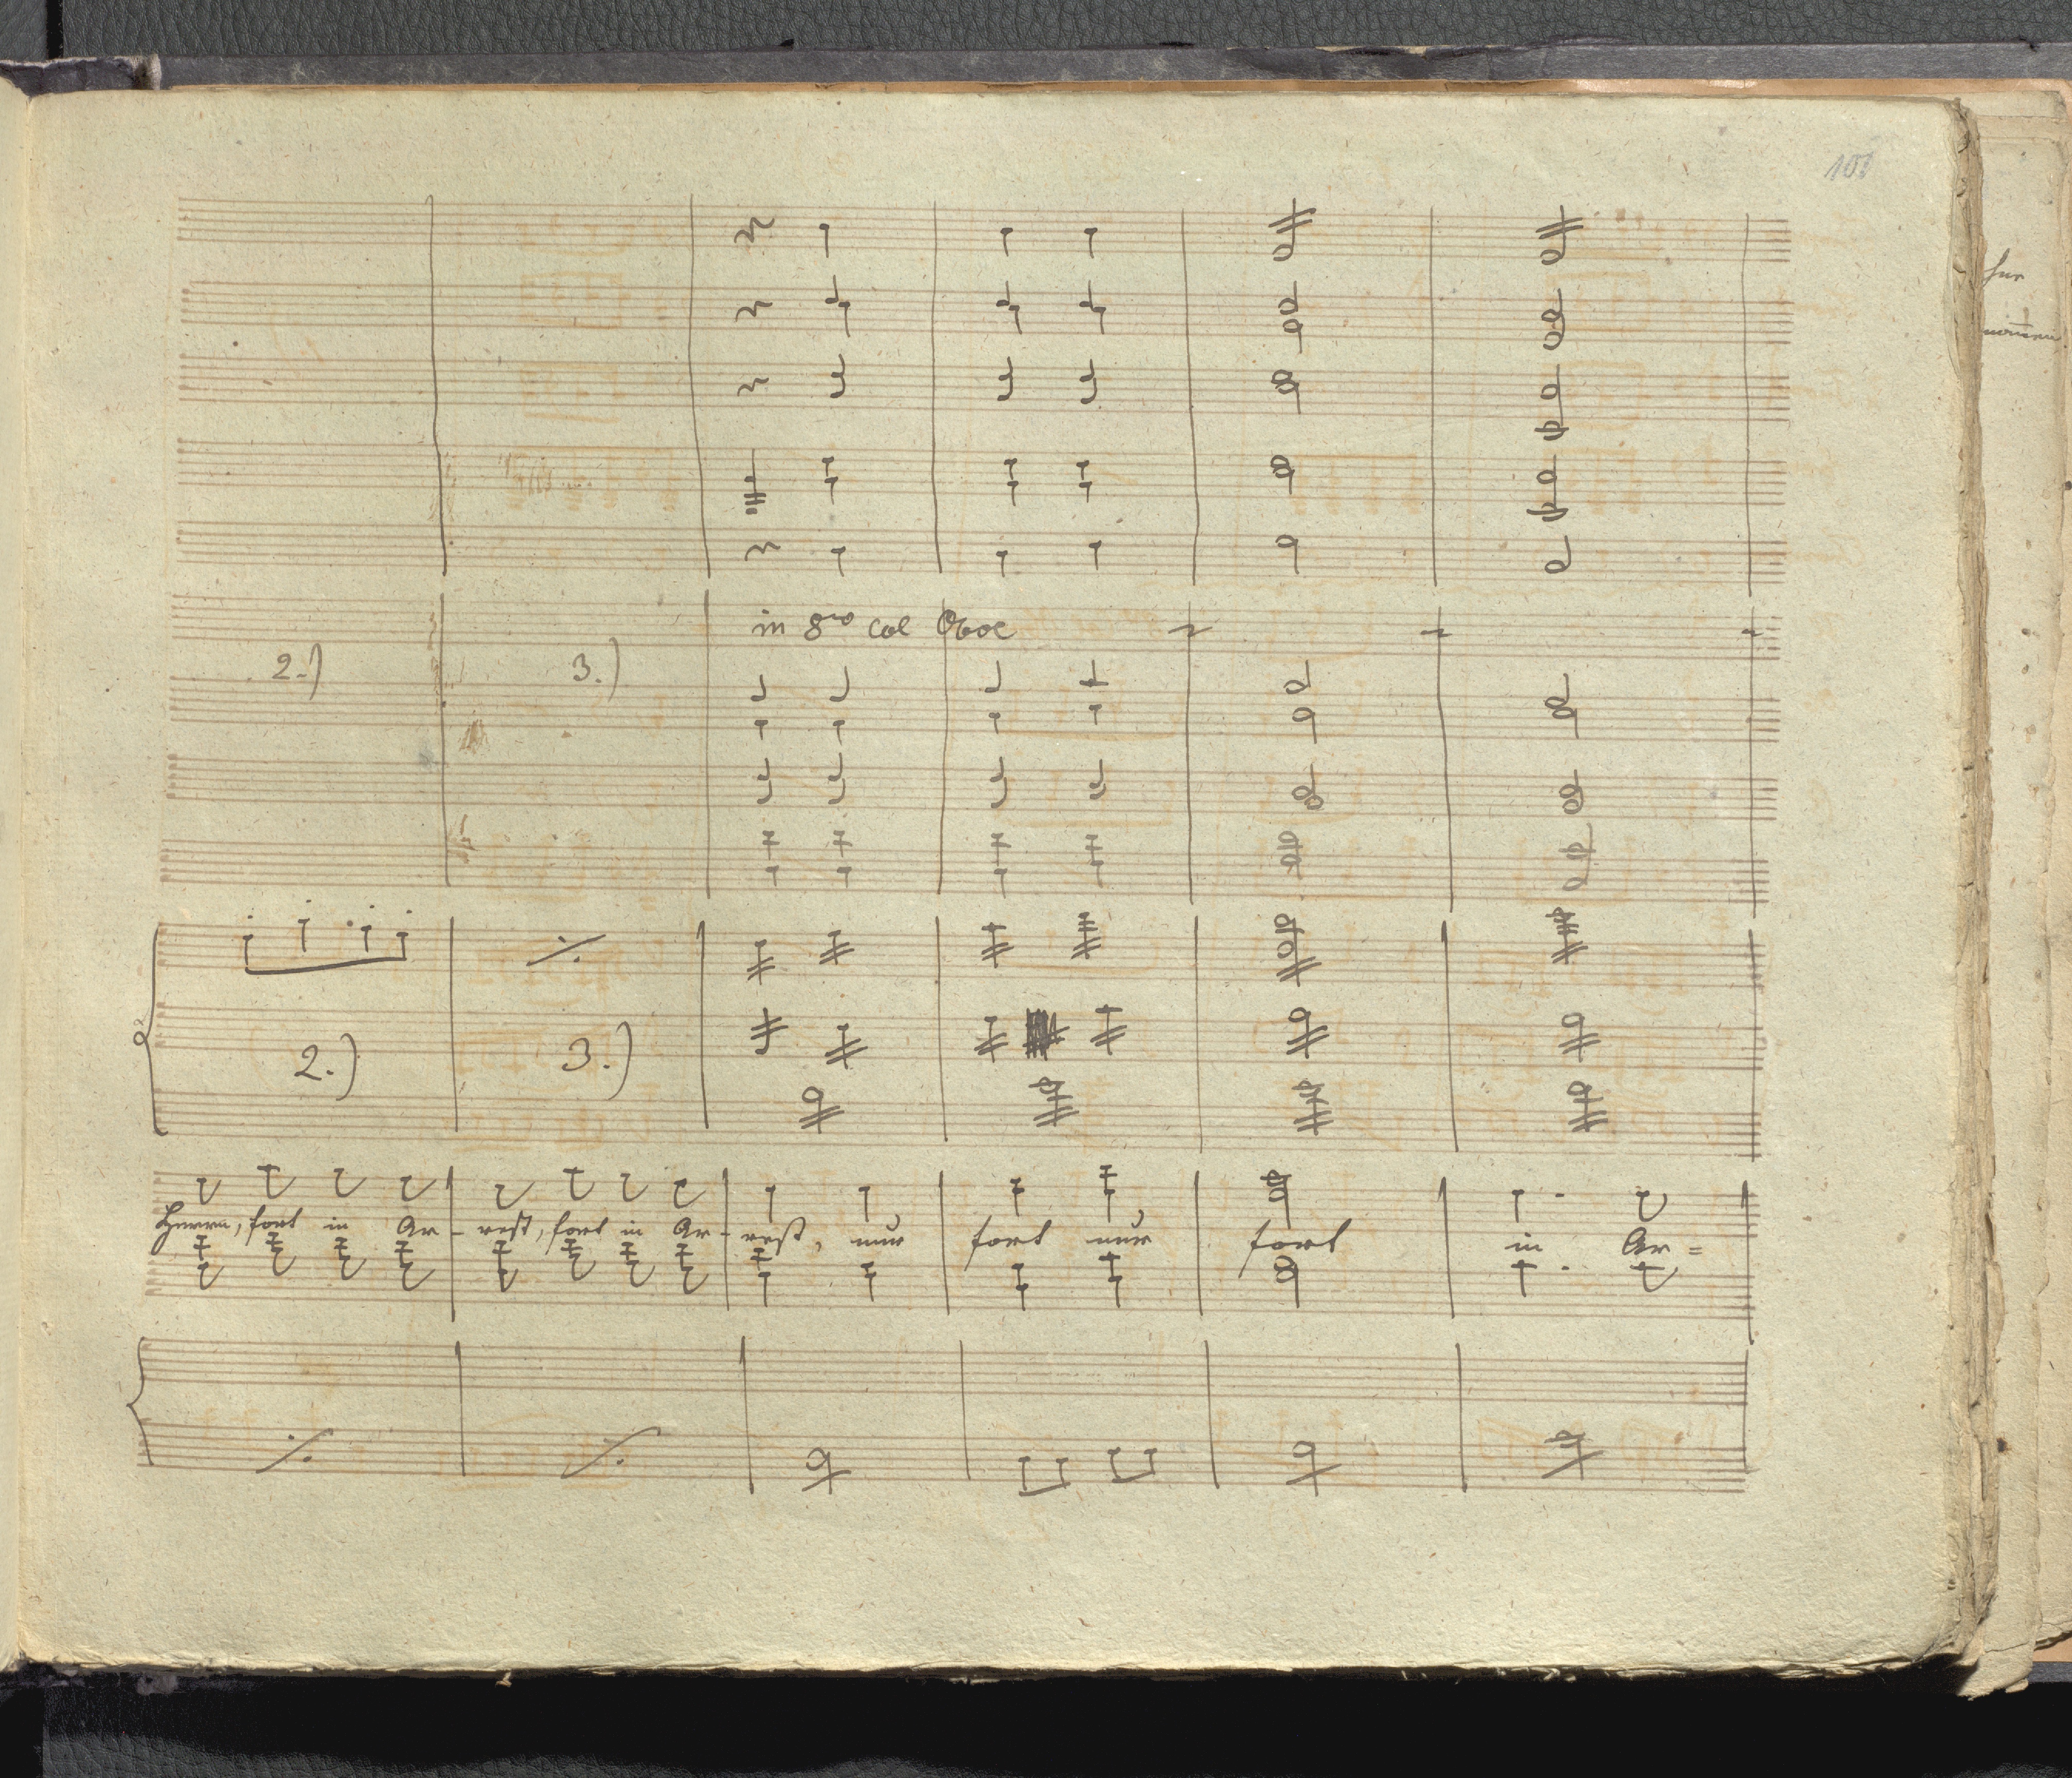 in 8vo col Oboe
2.) 3.)
2.) 3.)
Herrn, fort in Ar - rest, fort in Ar - rest, nur fort nur fort in Ar =